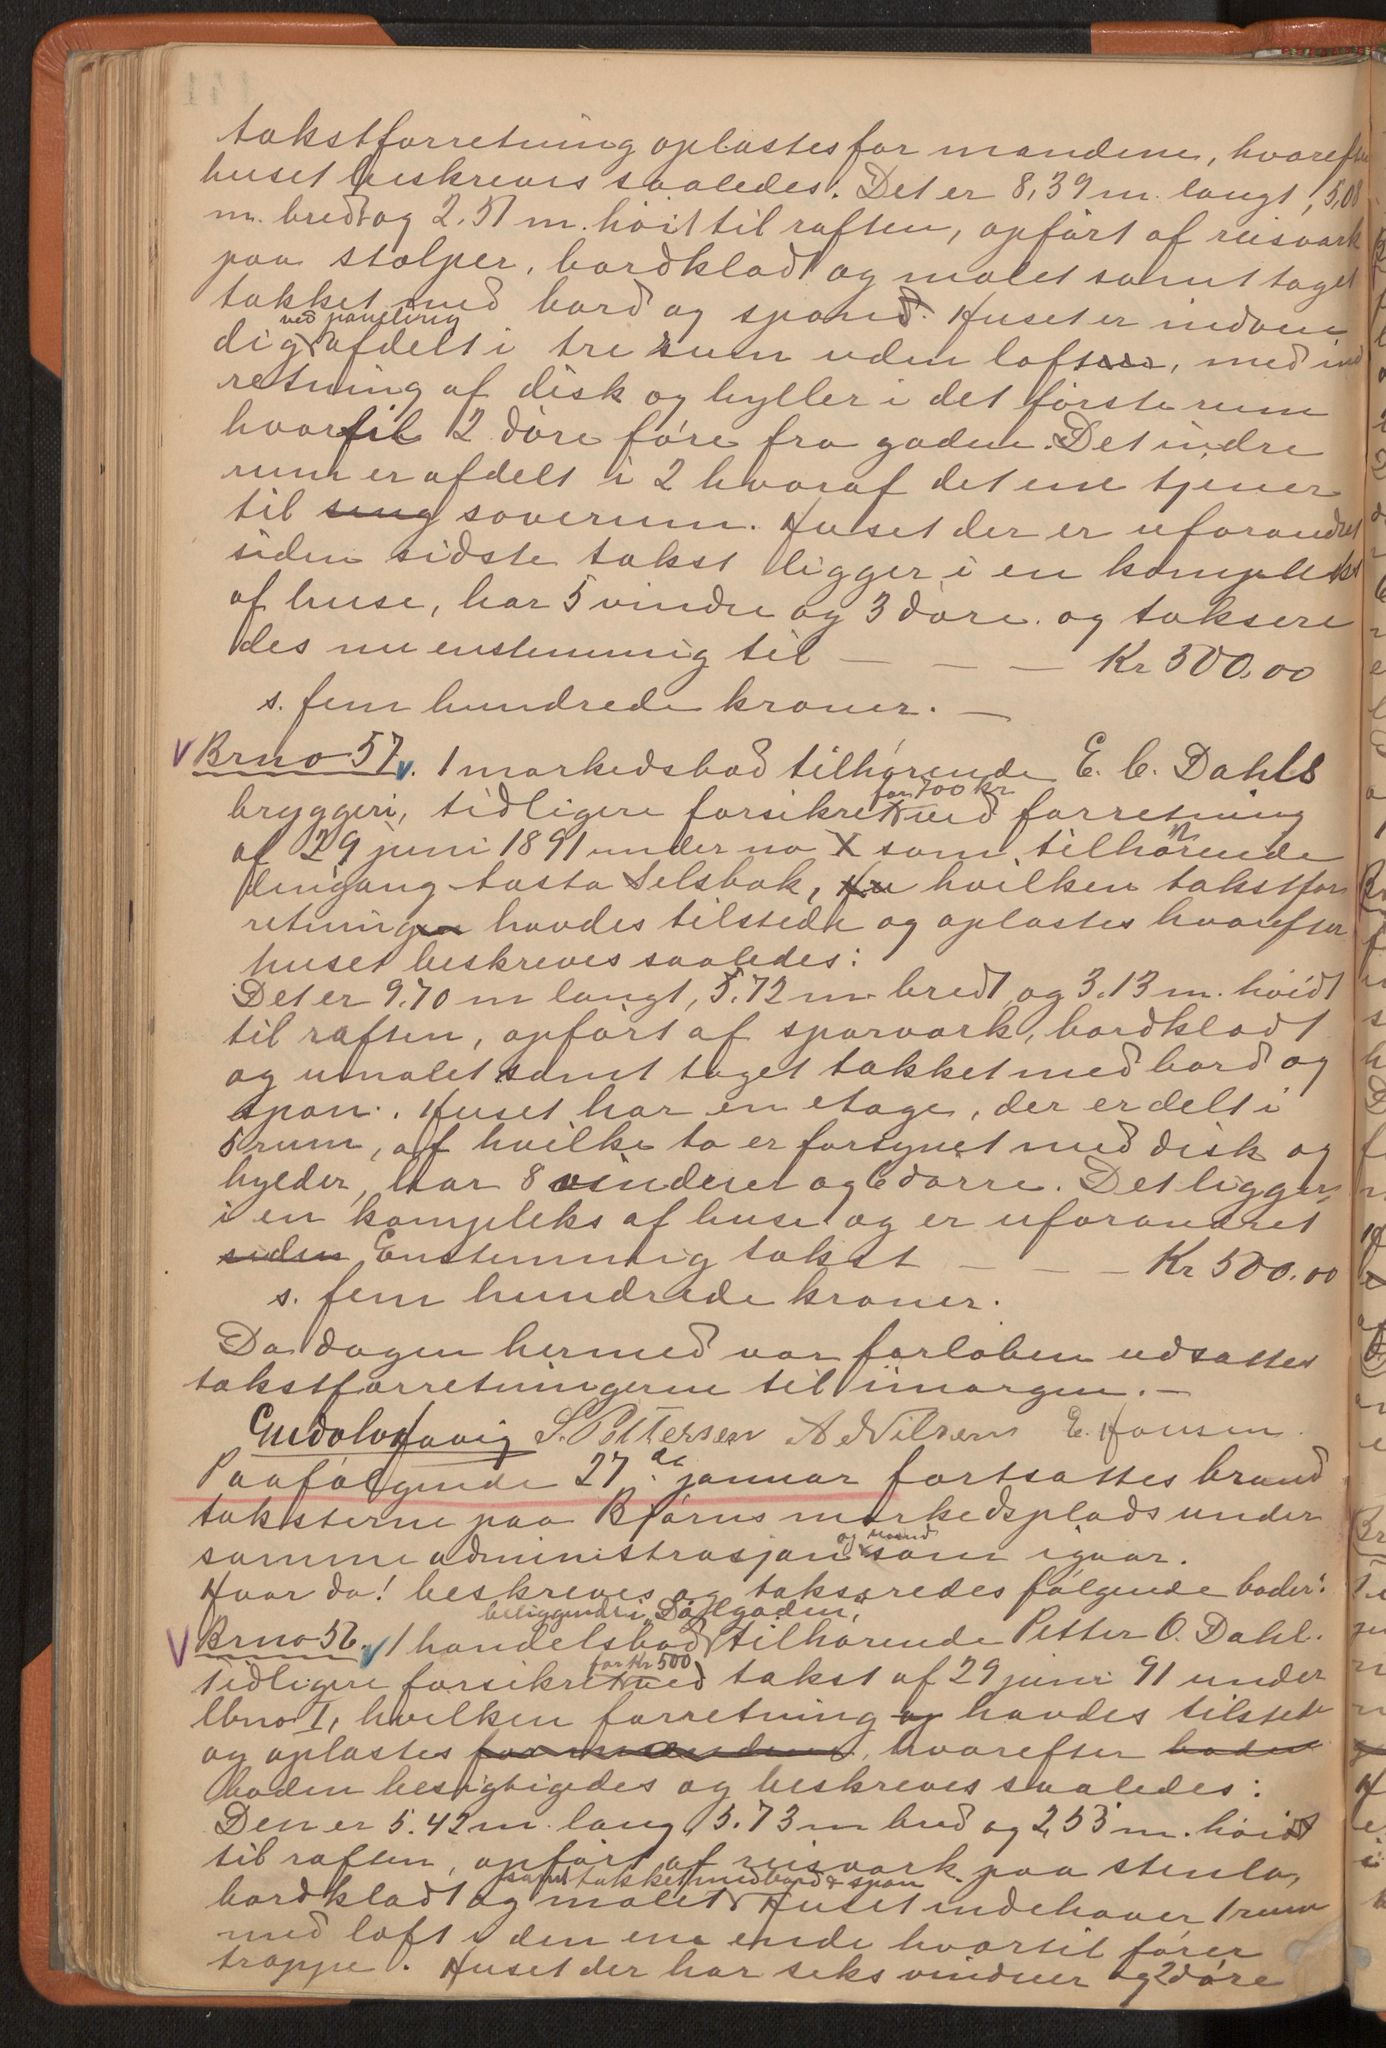 takstforretning oplæstes for mændene, hvorefter
huset beskreves saaledes. Det er 8,39 m. langt, 5,08
m. bredt og 2.51 m. höit til raften, opfört af reisverk
paa stolper, bordklædt og malet samt taget
tækket med bord og spond. Huset er indven
dig ved paneling afdelt i tre rum uden loft, med ind
retning af disk og hyller i det förste rum
hvortil 2 döre före fra gaden. Det indre
rum er afdelt i 2 hvoraf det ene tjener
til seng soverum. Huset der er uforandret
siden sidste takst ligger i en kompleks
af huse, har 5 vindu og 3 döre. og taksere
des nu enstemmig til — — — Kr 500.00
s. fem hundrede kroner. —
Brno 57. 1 markedsbod tilhörende E. C. Dahls
bryggeri, tidligere forsikret for 700 kr ved forretning
af 29 juni 1891 under no X som tilhörende
dengang tosta Selsbak, hvilken takstfor
retning havdes tilstede og oplæstes hvorefter
huset beskreves saaledes:
Det er 9.70 m langt, 5.72 m bredt og 3.13 m. höidt
til raften, opfört af sparverk, bordklædt
og umalet samt taget tækket med bord og
spon. Huset har en etage, der er delt i
5 rum, af hvilke to er forsynet med disk og
hylder, har 8 vinduer og 6 dörre. Det ligger
i en kompleks af huse og er uforandret
siden Enstemmig takst — — — Kr 500.00
s. fem hundrede kroner.
Da dagen hermed var forløben udsattes
takstforretningerne til imorgen. —
Gudolv Havig S. Pettersen A Nilsen E. Hansen
Paafölgende 27de januar fortsattes brand
taksterne paa Bjørns markedsplads under
samme administrasjon og mænd som igaar.
Hvor da! beskreves og takseredes følgende boder:
Brno 56. 1 handelsbod beliggende i "Döllgaden", tilhörende Petter O. Dahl.
Tidligere forsikret for Kr 500 ved takst af 29 juni 91 under
lbno I, hvilken forretning og havdes tilstede
og oplæstes for mændene, hvorefter boden
boden besigtigedes og beskreves saaledes:
Den er 5.42 m. lang, 5.73 m bred og 2,53 m. höidt
til raften, opfört af reisverk paa stenla,
bordklædt og malet samt tækket med bord & spon. Huset indehaver 1 rum
med loft i den ene ende hvortil förer
trappe. Huset der har seks vinduer og 2 döre